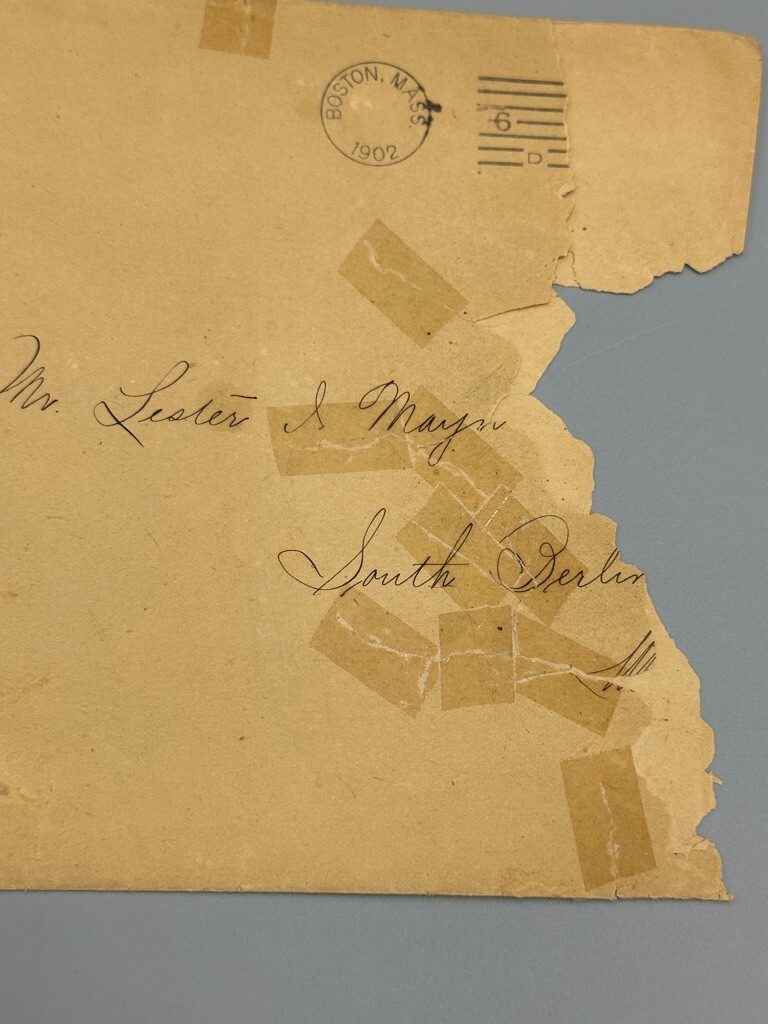 BOSTON, MASS.
1902
6
D
Mr. Lester I Mayn
South Berlin